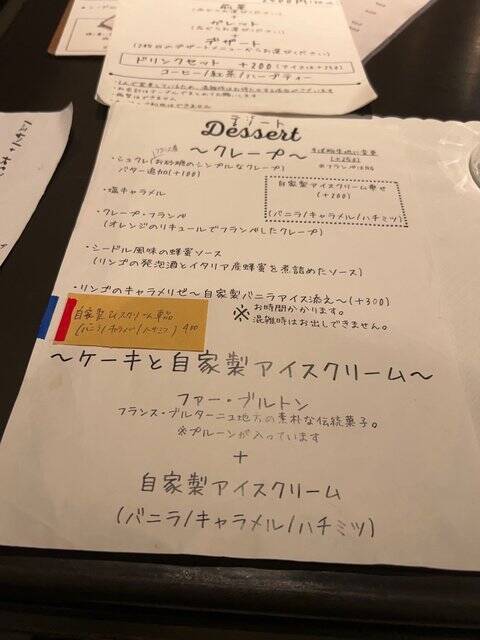 前菜
+
ガレット
+
デザート
ドリンクセット +200
コーヒー/紅茶/ハーブティー
デザート
Dessert
～クレープ～
そば粉生地に変更
(+250)
・シュクレ(お砂糖のシンプルなクレープ)
バター追加(+100)
自家製アイスクリーム乗せ
(+200)
(バニラ/キャラメル/ハチミツ)
・塩キャラメル
・クレープ・フランベ
(オレンジのリキュールでフランベしたクレープ)
・シードル風味の蜂蜜ソース
(リンゴの発泡酒とイタリア産蜂蜜を煮詰めたソース)
・リンゴのキャラメリゼ～自家製バニラアイス添え～(+300)
※お時間かかります。
混雑時はお出しできません。
自家製アイスクリーム単品
(バニラ/キャラメル/ハチミツ) 400
～ケーキと自家製アイスクリーム～
ファー・ブルトン
フランス・ブルターニュ地方の素朴な伝統菓子。
※プルーンが入っています
+
自家製アイスクリーム
(バニラ/キャラメル/ハチミツ)